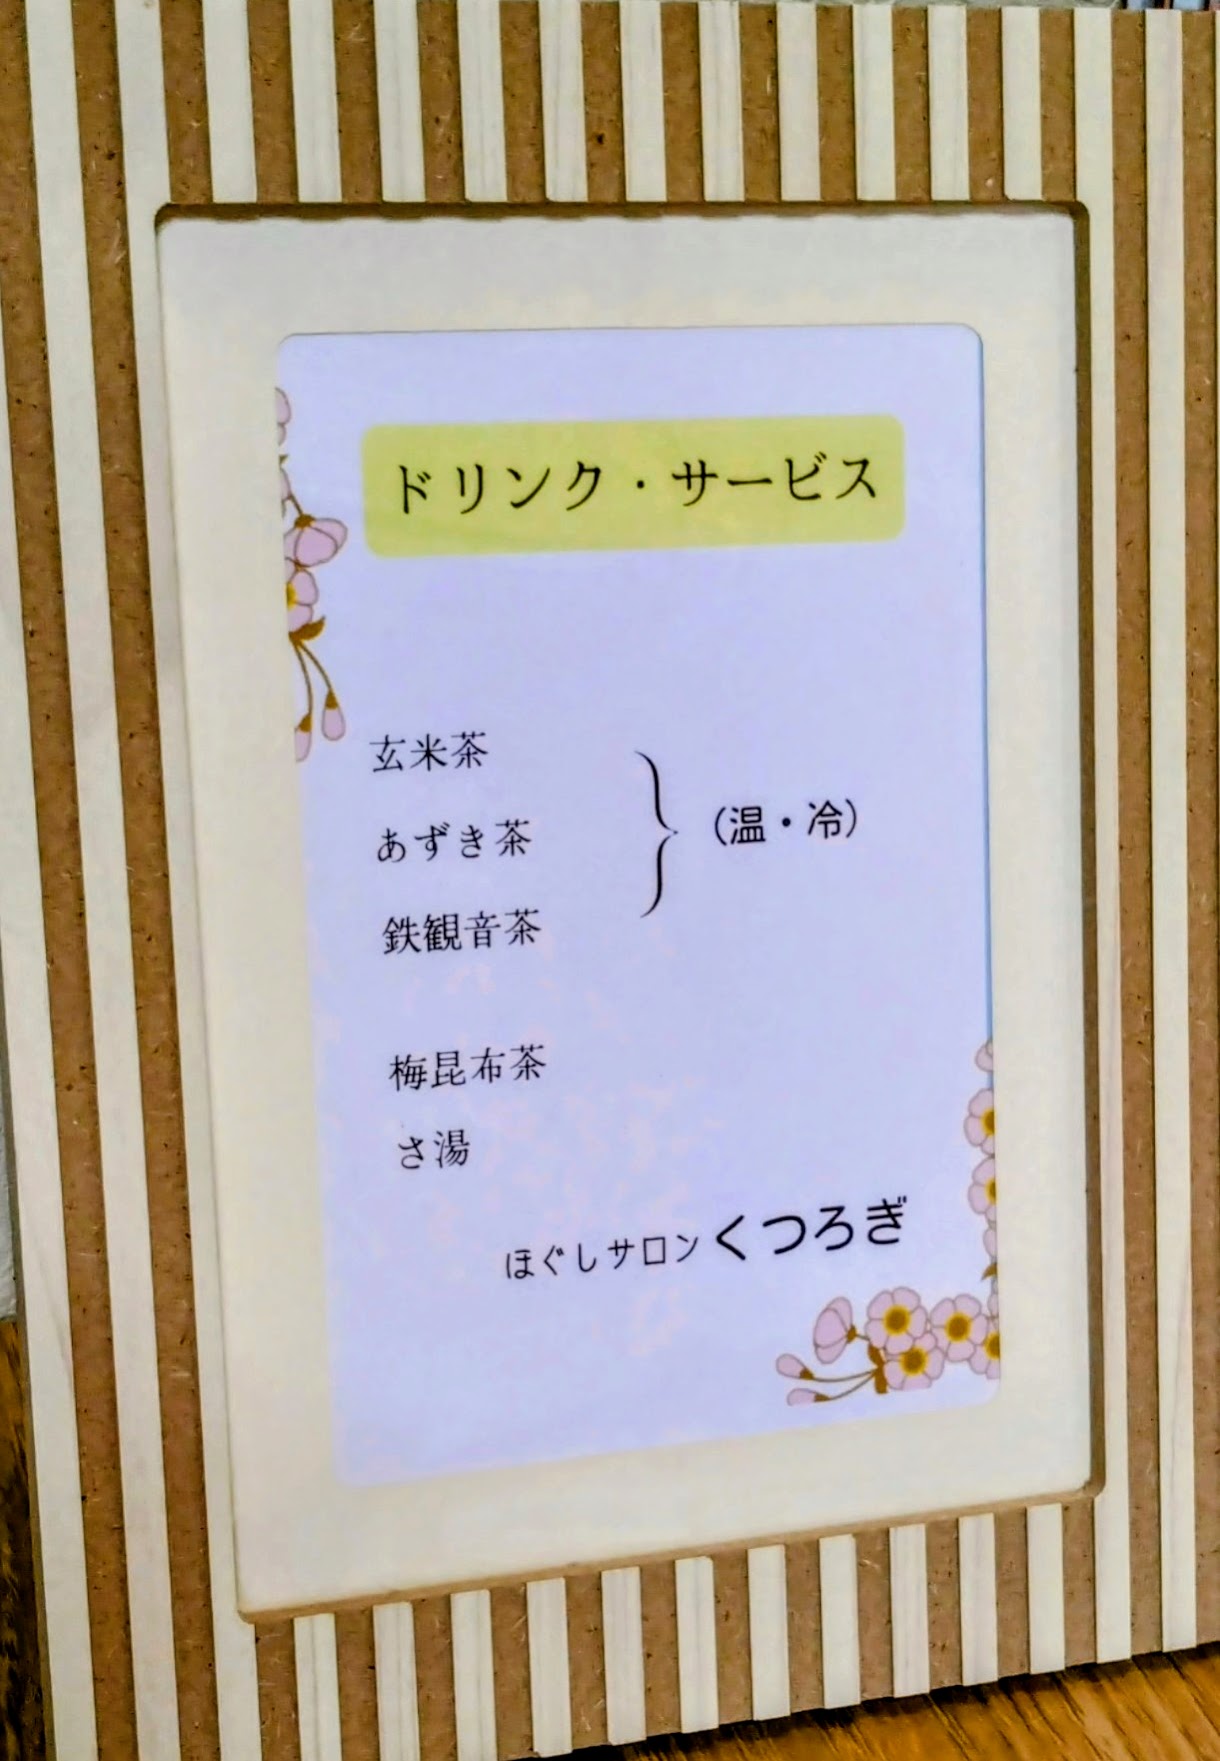 ドリンク・サービス
玄米茶
あずき茶
鉄観音茶
(温・冷)
梅昆布茶
さ湯
ほぐしサロン くつろぎ